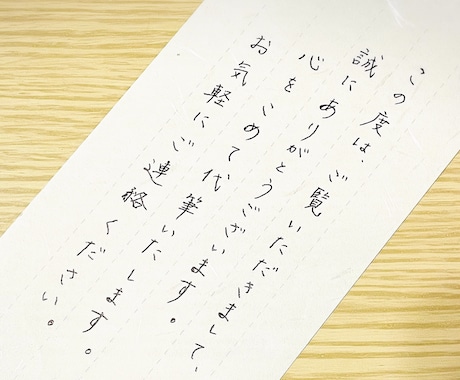 この度は、ご覧いただきまして、
誠にありがとうございます。
心をこめて代筆いたします。
お気軽にご連絡ください。